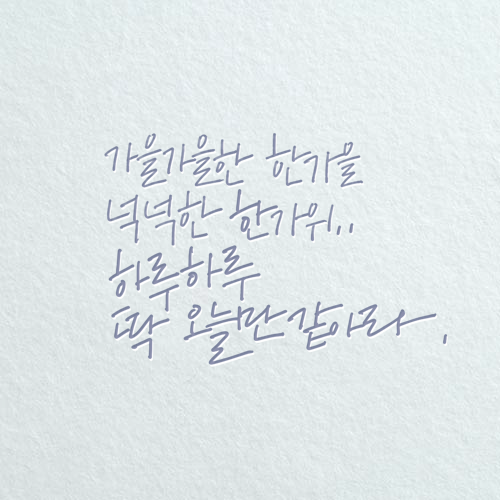 가을가을한 한가을
넉넉한 한가위..
하루하루
딱 오늘만 같아라.